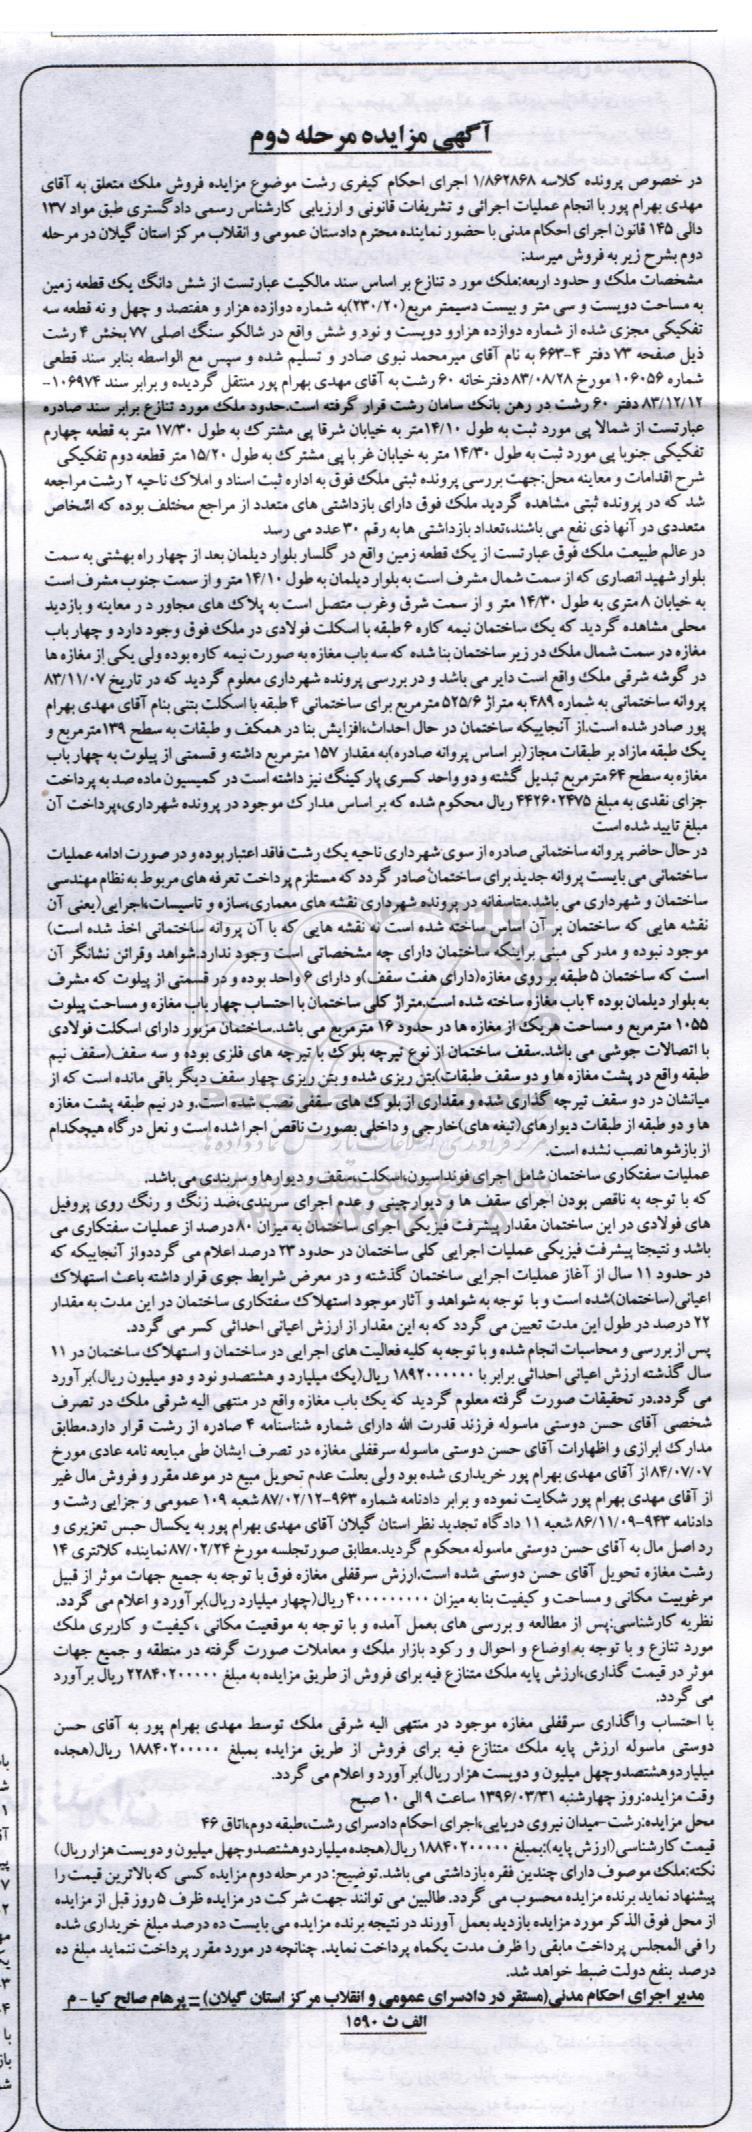 آگهی مزایده مرحله دوم
در خصوص پرونده کلاسه ۱/۸۶۲۸۶۸ اجرای احکام کیفری رشت موضوع مزایده فروش ملک متعلق به آقای
مهدی بهرام پور با انجام عملیات اجرائی و تشریفات قانونی و ارزیابی کارشناس رسمی دادگستری طبق مواد ۱۳۷
دالی ۱۴۵ قانون اجرای احکام مدنی با حضور نماینده محترم دادستان عمومی و انقلاب مرکز استان گیلان در مرحله
دوم بشرح زیر به فروش میرسد:
مشخصات ملک و حدود اربعه:ملک مور د تنازع بر اساس سند مالکیت عبارتست از شش دانگ یک قطعه زمین
به مساحت دویست و سی متر و بیست دسیمتر مربع(۲۳۰/۲۰)به شماره دوازده هزار و هفتصد و چهل و نه قطعه سه
تفکیکی مجزی شده از شماره دوازده هزارو دویست و نود و شش واقع در شالکو سنگ اصلی ۷۷ بخش ۴ رشت
ذیل صفحه ۷۳ دفتر ۴-۶۶۳ به نام آقای میرمحمد نبوی صادر و تسلیم شده و سپس مع الواسطه بنابر سند قطعی
شماره ۱۰۶۰۵۶ مورخ ۸۳/۰۸/۲۸ دفترخانه ۶۰ رشت به آقای مهدی بهرام پور منتقل گردیده و برابر سند ۱۰۶۹۷۴-
۸۳/۱۲/۱۲ دفتر ۶۰ رشت در رهن بانک سامان رشت قرار گرفته است.حدود ملک مورد تنازع برابر سند صادره
عبارتست از شمالا پی مورد ثبت به طول ۱۴/۱۰متر به خیابان شرقا پی مشترک به طول ۱۷/۳۰ متر به قطعه چهارم
تفکیکی جنوبا پی مورد ثبت به طول ۱۴/۳۰ متر به خیابان غر با پی مشترک به طول ۱۵/۲۰ متر قطعه دوم تفکیکی
شرح اقدامات و معاینه محل:جهت بررسی پرونده ثبتی ملک فوق به اداره ثبت اسناد و املاک ناحیه ۲ رشت مراجعه
شد که در پرونده ثبتی مشاهده گردید ملک فوق دارای بازداشتی های متعدد از مراجع مختلف بوده که اشخاص
متعددی در آنها ذی نفع می باشند،تعداد بازداشتی ها به رقم ۳۰ عدد می رسد
در عالم طبیعت ملک فوق عبارتست از یک قطعه زمین واقع در گلسار بلوار دیلمان بعد از چهار راه بهشتی به سمت
بلوار شهید انصاری که از سمت شمال مشرف است به بلوار دیلمان به طول ۱۴/۱۰ متر و از سمت جنوب مشرف است
به خیابان ۸ متری به طول ۱۴/۳۰ متر و از سمت شرق وغرب متصل است به پلاک های مجاور د ر معاینه و بازدید
محلی مشاهده گردید که یک ساختمان نیمه کاره ۶ طبقه با اسکلت فولادی در ملک فوق وجود دارد و چهار باب
مغازه در سمت شمال ملک در زیر ساختمان بنا شده که سه باب مغازه به صورت نیمه کاره بوده ولی یکی از مغازه ها
در گوشه شرقی ملک واقع است دایر می باشد و در بررسی پرونده شهرداری معلوم گردید که در تاریخ ۸۳/۱۱/۰۷
پروانه ساختمانی به شماره ۴۸۹ به متراژ ۵۲۵/۶ مترمربع برای ساختمانی ۴ طبقه با اسکلت بتنی بنام آقای مهدی بهرام
پور صادر شده است.از آنجاییکه ساختمان در حال احداث،افزایش بنا در همکف و طبقات به سطح ۱۳۹ مترمربع و
یک طبقه مازاد بر طبقات مجاز(بر اساس پروانه صادره)به مقدار ۱۵۷ مترمربع داشته و قسمتی از پیلوت به چهار باب
مغازه به سطح ۶۴ مترمربع تبدیل گشته و دو واحد کسری پارکینگ نیز داشته است در کمیسیون ماده صد به پرداخت
جزای نقدی به مبلغ ۴۴۲۶۰۲۴۷۵ ریال محکوم شده که بر اساس مدارک موجود در پرونده شهرداری،پرداخت آن
مبلغ تایید شده است
در حال حاضر پروانه ساختمانی صادره از سوی شهرداری ناحیه یک رشت فاقد اعتبار بوده و در صورت ادامه عملیات
ساختمانی می بایست پروانه جدید برای ساختمان صادر گردد که مستلزم پرداخت تعرفه های مربوط به نظام مهندسی
ساختمان و شهرداری می باشد.متاسفانه در پرونده شهرداری نقشه های معماری،سازه و تاسیسات،اجرایی(یعنی آن
نقشه هایی که ساختمان بر آن اساس ساخته شده است نه نقشه هایی که با آن پروانه ساختمانی اخذ شده است)
موجود نبوده و مدرکی مبنی براینکه ساختمان دارای چه مشخصاتی است وجود ندارد.شواهد وقرائن نشانگر آن
است که ساختمان ۵ طبقه بر روی مغازه(دارای هفت سقف)و دارای ۶ واحد بوده و در قسمتی از پیلوت که مشرف
به بلوار دیلمان بوده ۴ باب مغازه ساخته شده است.متراژ کلی ساختمان با احتساب چهار باب مغازه و مساحت پیلوت
۱۰۵۵ مترمربع و مساحت هریک از مغازه ها در حدود ۱۶ مترمربع می باشد.ساختمان مزبور دارای اسکلت فولادی
با اتصالات جوشی می باشد.سقف ساختمان از نوع تیرچه بلوک با تیرچه های فلزی بوده و سه سقف(سقف نیم
طبقه واقع در پشت مغازه ها و دو سقف طبقات)بتن ریزی شده و بتن ریزی چهار سقف دیگر باقی مانده است که از
میانشان در دو سقف تیرچه گذاری شده و مقداری از بلوک های سقفی نصب شده است.و در نیم طبقه پشت مغازه
ها و دو طبقه از طبقات دیوارهای(تیغه های)خارجی و داخلی بصورت ناقص اجرا شده است و نعل درگاه هیچکدام
از بازشوها نصب نشده است.
عملیات سفتکاری ساختمان شامل اجرای فونداسیون،اسکلت،سقف و دیوارها و سربندی می باشد.
که با توجه به ناقص بودن اجرای سقف ها و دیوارچینی و عدم اجرای سربندی،ضد زنگ و رنگ روی پروفیل
های فولادی در این ساختمان مقدار پیشرفت فیزیکی اجرای ساختمان به میزان ۸۰ درصد از عملیات سفتکاری می
باشد و نتیجتا پیشرفت فیزیکی عملیات اجرایی کلی ساختمان در حدود ۲۳ درصد اعلام می گرددواز آنجاییکه که
در حدود ۱۱ سال از آغاز عملیات اجرایی ساختمان گذشته و در معرض شرایط جوی قرار داشته باعث استهلاک
اعیانی(ساختمان)شده است و با توجه به شواهد و آثار موجود استهلاک سفتکاری ساختمان در این مدت به مقدار
۲۲ درصد در طول این مدت تعیین می گردد که به این مقدار از ارزش اعیانی احداثی کسر می گردد.
پس از بررسی و محاسبات انجام شده و با توجه به کلیه فعالیت های اجرایی در ساختمان و استهلاک ساختمان در ۱۱
سال گذشته ارزش اعیانی احداثی برابر با ۱۸۹۲۰۰۰۰۰۰ ریال(یک میلیارد و هشتصدو نود و دو میلیون ریال)برآورد
می گردد.در تحقیقات صورت گرفته معلوم گردید که یک باب مغازه واقع در منتهی الیه شرقی ملک در تصرف
شخصی آقای حسن دوستی ماسوله فرزند قدرت الله دارای شماره شناسنامه ۴ صادره از رشت قرار دارد.مطابق
مدارک ابرازی و اظهارات آقای حسن دوستی ماسوله سرقفلی مغازه در تصرف ایشان طی مبایعه نامه عادی مورخ
۸۴/۰۷/۰۷ از آقای مهدی بهرام پور خریداری شده بود ولی بعلت عدم تحویل مبیع در موعد مقرر و فروش مال غیر
از آقای مهدی بهرام پور شکایت نموده و برابر دادنامه شماره ۹۶۳-۸۷/۰۲/۱۲ شعبه ۱۰۹ عمومی و جزایی رشت و
دادنامه ۹۴۳-۸۶/۱۱/۰۹ شعبه ۱۱ دادگاه تجدید نظر استان گیلان آقای مهدی بهرام پور به یکسال حبس تعزیری و
رد اصل مال به آقای حسن دوستی ماسوله محکوم گردید.مطابق صورتجلسه مورخ ۸۷/۰۲/۲۴ نماینده کلانتری ۱۴
رشت مغازه تحویل آقای حسن دوستی شده است.ارزش سرقفلی مغازه فوق با توجه به جمیع جهات موثر از قبیل
مرغوبیت مکانی و مساحت و کیفیت بنا به میزان ۴۰۰۰۰۰۰۰۰۰ ریال(چهار میلیارد ریال)برآورد و اعلام می گردد.
نظریه کارشناسی:پس از مطالعه و بررسی های بعمل آمده و با توجه به موقعیت مکانی ،کیفیت و کاربری ملک
مورد تنازع و با توجه به اوضاع و احوال و رکود بازار ملک و معاملات صورت گرفته در منطقه و جمیع جهات
موثر در قیمت گذاری،ارزش پایه ملک متنازع فیه برای فروش از طریق مزایده به مبلغ ۲۲۸۴۰۲۰۰۰۰۰ ریال برآورد
می گردد.
با احتساب واگذاری سرقفلی مغازه موجود در منتهی الیه شرقی ملک توسط مهدی بهرام پور به آقای حسن
دوستی ماسوله ارزش پایه ملک متنازع فیه برای فروش از طریق مزایده بمبلغ ۱۸۸۴۰۲۰۰۰۰۰ ریال(هجده
میلیاردوهشتصدوچهل میلیون و دویست هزار ریال)برآورد و اعلام می گردد.
وقت مزایده:روز چهارشنبه ۱۳۹۶/۰۳/۳۱ ساعت ۹ الی ۱۰ صبح
محل مزایده:رشت-میدان نیروی دریایی،اجرای احکام دادسرای رشت،طبقه دوم،اتاق ۴۶
قیمت کارشناسی(ارزش پایه):بمبلغ ۱۸۸۴۰۲۰۰۰۰۰ ریال(هجده میلیاردوهشتصدوچهل میلیون و دویست هزار ریال)
نکته:ملک موصوف دارای چندین فقره بازداشتی می باشد.توضیح: در مرحله دوم مزایده کسی که بالاترین قیمت را
پیشنهاد نماید برنده مزایده محسوب می گردد. طالبین می توانند جهت شرکت در مزایده ظرف ۵ روز قبل از مزایده
از محل فوق الذکر مورد مزایده بازدید بعمل آورند در نتیجه برنده مزایده می بایست ده درصد مبلغ خریداری شده
را فی المجلس پرداخت مابقی را ظرف مدت یکماه پرداخت نماید. چنانچه در مورد مقرر پرداخت ننماید مبلغ ده
درصد بنفع دولت ضبط خواهد شد.
مدیر اجرای احکام مدنی(مستقر در دادسرای عمومی و انقلاب مرکز استان گیلان) = پرهام صالح کیا - م
الف ث ۱۵۹۰